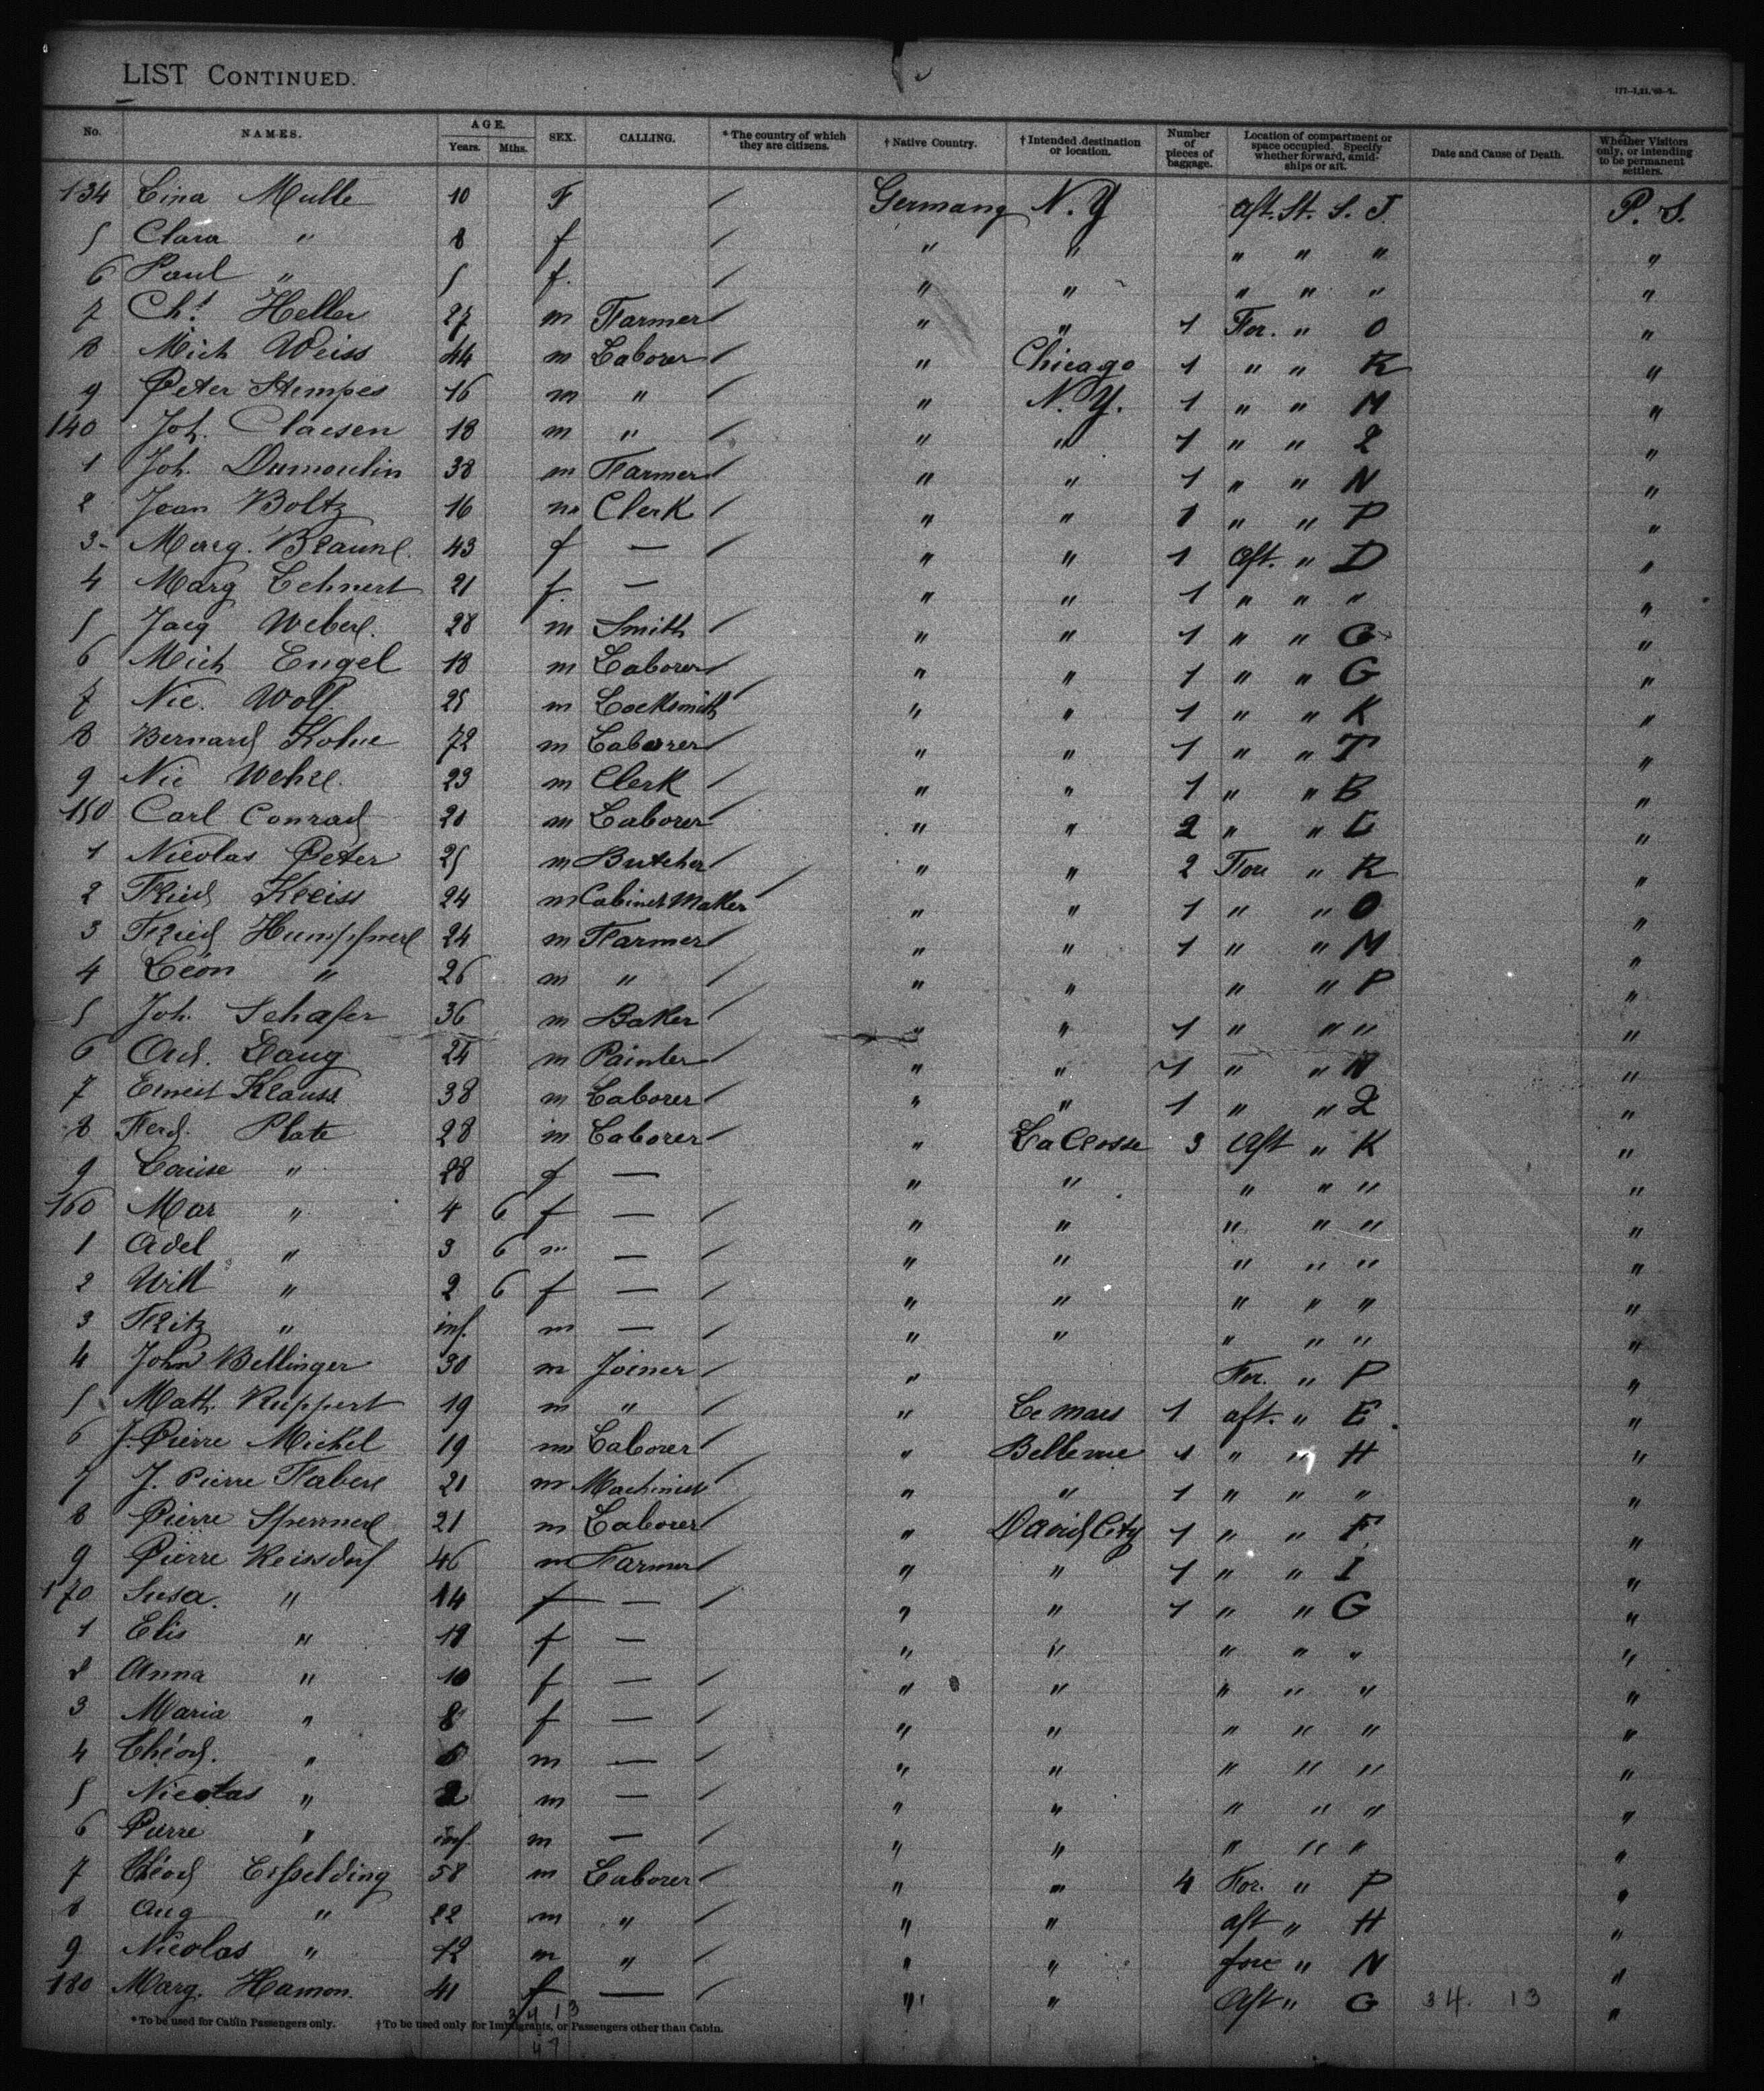 LIST CONTINUED.
No. NAMES. AGE. Years. Mths. SEX. CALLING. * The country of which they are citizens. † Native Country. † Intended destination or location. Number of pieces of baggage. Location of compartment or space occupied. Specify whether forward, amidships or aft. Date and Cause of Death. Whether Visitors only, or intending to be permanent settlers.
134 Lina Mulle 10 F / Germany N.Y aft. St. S. J. P. S.
5 Clara " 8 f / " " " " " "
6 Paul " 5 f. / " " " " " "
7 Ch. Heller 27 m Farmer / " " 1 For. " O "
8 Mich Weiss 44 m Laborer / " Chicago 1 " " R "
9 Peter Stempes 16 m " / " N.Y. 1 " " M "
140 Joh. Claesen 18 m " / " " 1 " " Q "
1 Joh. Dumoulin 38 m Farmer / " " 1 " " N "
2 Jean Boltz 16 m Clerk / " " 1 " " P "
3 Marg. Brauner 43 f — / " " 1 aft. " D "
4 Marg Lehnert 21 f. — " " 1 " " " "
5 Jacq Weber. 28 m Smith / " " 1 " " "
6 Mich Engel 18 m Laborer / " " 1 " " G "
7 Nic. Wolf 25 m Locksmith / " " 1 " " K "
8 Bernard Kohne 72 m Laborer / " " 1 " " T "
9 Nic Wehr. 23 m Clerk / " " 1 " " B "
150 Carl Conrad 20 m Laborer / " " 2 " " "
1 Nicolas Peter 25 m Butcher / " " 2 Fore " R "
2 Fried Kreiss 24 m Cabinet Maker / " " 1 " " O "
3 Fried Humpfner 24 m Farmer / " " 1 " " M "
4 Léon " 26 m " / " " " " P "
5 Joh. Schafer 36 m Baker / " " 1 " " " "
6 Daug 24 m Painter / " " 1 " " N "
7 Ernest Krauss 38 m Laborer / " " 1 " " Q "
8 Ferd. Plate 28 m Laborer / " LaCrosse 3 Aft " K "
9 Louise " 28 f — " " " " " "
160 Mar " 4 6 f — / " " " " " "
1 Adel " 3 6 m — / " " " " " "
2 Will " 2 6 f — / " " " " " "
3 Fritz " inf. m — / " " " " " "
4 John Bellinger 30 m Joiner / " For. " P "
5 Math. Ruppert 19 m " / " Le mars 1 aft. " E "
6 J. Pierre Michel 19 m Laborer / " Bellevue 1 " " H "
7 J. Pierre Faber 20 m Machinist / " " 1 " " " "
8 Pierre Sperrner 21 m Laborer / " David City 1 " " F "
9 Pierre Reissdorf 46 m Farmer / " " 1 " " I "
170 Susa. " 14 f — / " " 1 " " G "
1 Elis " f — " " " " " "
2 Anna " 10 f — / " " " " " "
3 Maria " 8 f — / " " " " " "
4 Théod. " m — / " " " " " "
5 Nicolas " 2 m — / " " " " " "
6 Pierre " inf. m — / " " " " " "
7 Théod Erpelding 58 m Laborer / " " 4 For. " P "
8 Aug " 22 m " / " " aft " H "
9 Nicolas " 12 m " / " " fore " N "
180 Marg. Hamon. 41 f — / " " Aft " G 34. 13 "
34 13
* To be used for Cabin Passengers only. † To be used only for Immigrants, or Passengers other than Cabin.